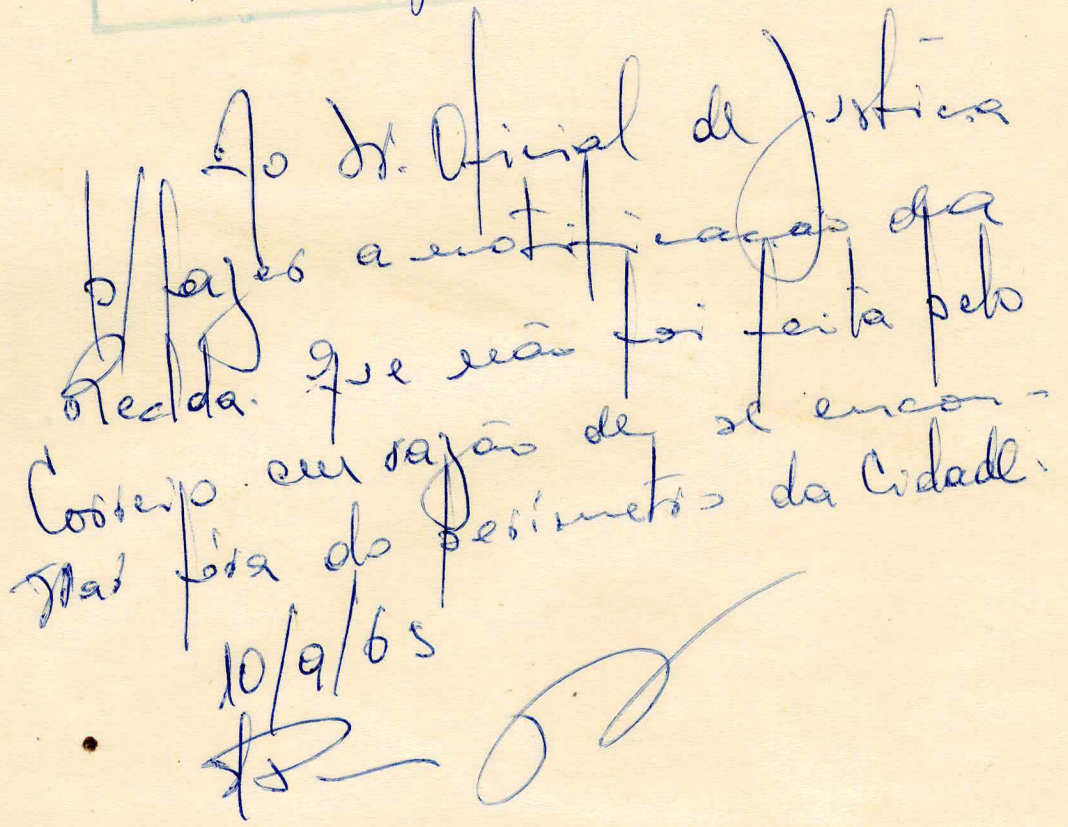 Ao Sr. Oficial de Justiça
p/ fazer a notificação da
Recl/da. que não foi feita pelo
Correio em razão de se encon-
trar fóra do perímetro da Cidade.
10/9/65